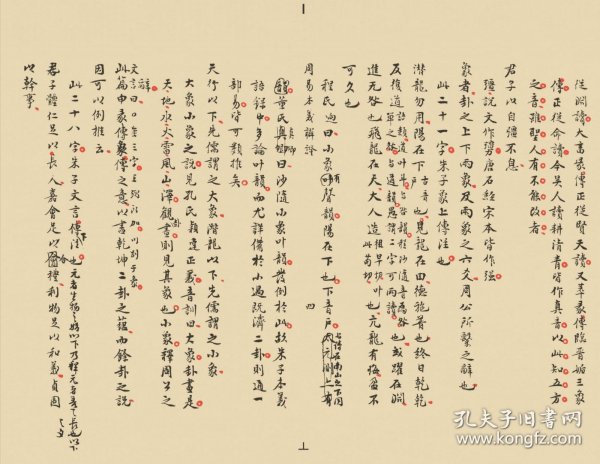 從閒讀大畜彖傳正從賢天讀又萃彖傳臨晉姤三彖
傳正從命讀今吴人讀耕清青皆作真音以此知五方
之音雖聖人有不能改者
君子以自彊不息
彊說文作彊唐石經宋本皆作强
此二十一字朱子象上傳注也
象者卦之上下兩象及兩象之六爻周公所繫之辭也
潛龍勿用陽在下也見龍在田德施普也終日乾乾
反復道
進无咎也飛龍在天大人造也亢龍有悔盈不
可久也
周易本義辯證
四
程氏迥曰小象有聲韻陽在下也下音戶
董氏真卿曰沙隨小象叶韻發例於此故朱子本義
語録中多論叶韻而尤詳備於小過既濟二卦則通一
部易皆可類推矣
天行以下先儒謂之大象潛龍以下先儒謂之小象
大象小象之說見孔氏穎達正義音訓曰大象卦畫是
天地水火雷風山澤觀卦畫則見其象也小象釋周公之
辭
文言曰
此篇申彖傳象傳之意以盡乾坤二卦之蘊而餘卦之說
因可以例推云
此二十八字朱子文言傳注也
君子體仁足以長人嘉會足以合禮利物足以和義貞固
足以幹事
孔夫子旧书网
www.kongfz.com